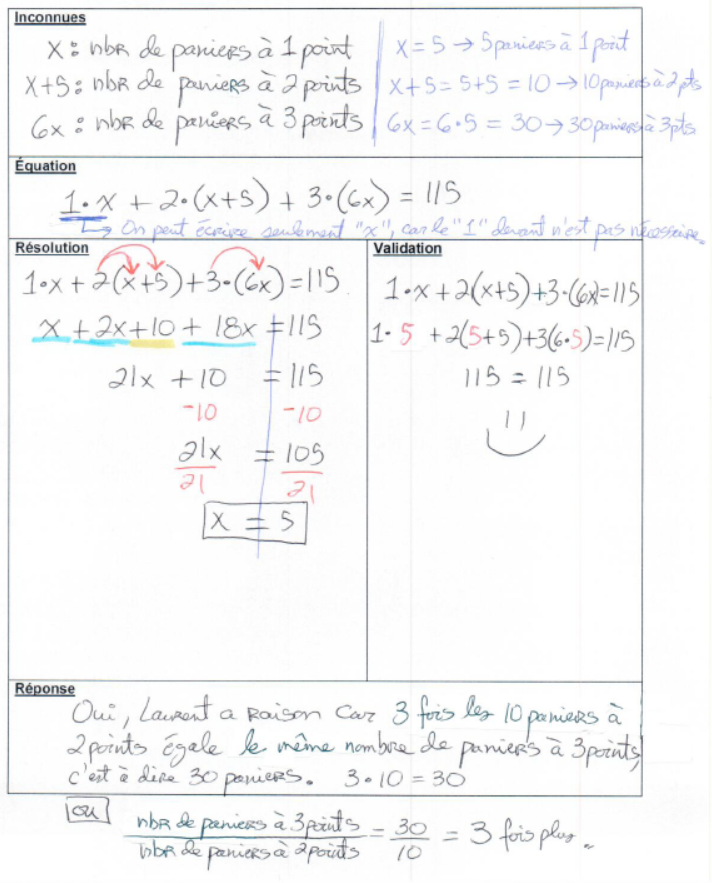 Inconnues
x : nbr de paniers à 1 point
x+5 : nbr de paniers à 2 points
6x : nbr de paniers à 3 points
x = 5 → 5 paniers à 1 point
x+5 = 5+5 = 10 → 10 paniers à 2 pts
6x = 6•5 = 30 → 30 paniers à 3 pts
Équation
1•x + 2•(x+5) + 3•(6x) = 115
↳ On peut écrire seulement "x", car le "1" devant n'est pas nécessaire.
Résolution
1•x + 2(x+5) + 3•(6x) = 115
x + 2x + 10 + 18x = 115
21x + 10 = 115
-10 -10
21x = 105
21 21
x = 5
Validation
1•x + 2(x+5) + 3•(6x) = 115
1•5 + 2(5+5) + 3(6•5) = 115
115 = 115
Réponse
Oui, Laurent a raison car 3 fois les 10 paniers à
2 points égale le même nombre de paniers à 3 points,
c'est à dire 30 paniers. 3•10 = 30
ou
nbr de paniers à 3 points = 30 = 3 fois plus.
nbr de paniers à 2 points 10